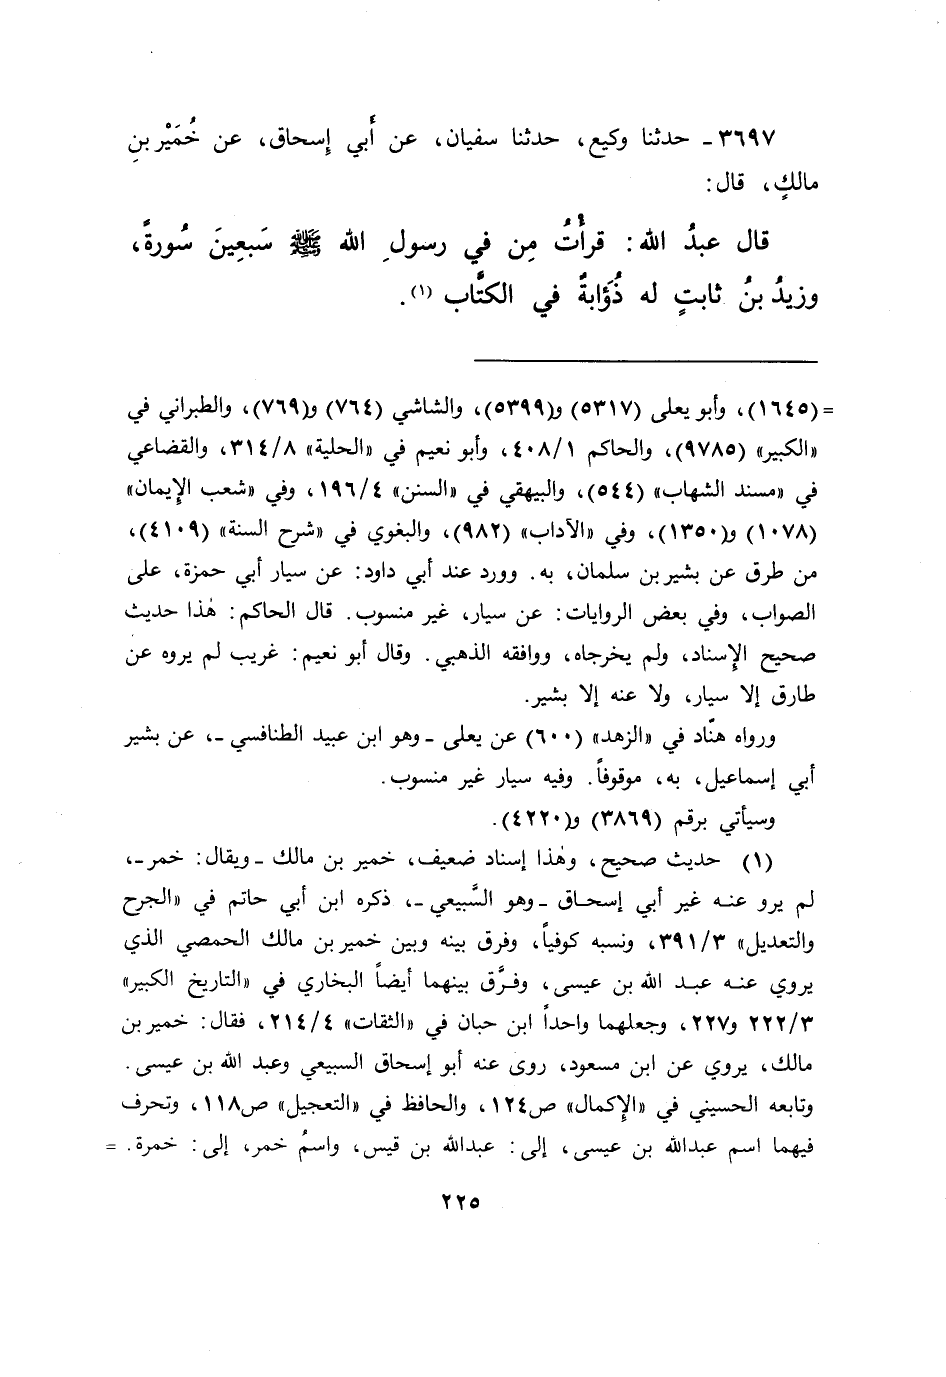 ٣٦٩٧ ـ حدثنا وكيع، حدثنا سفيان، عن أَبي إِسحاق، عن خُمَيْر بنِ
مالكٍ، قال:
قال عبدُ الله: قرأْتُ مِن في رسولِ الله ﷺ سَبعِينَ سُورةً،
وزيدُ بنُ ثابتٍ له ذُؤَابةٌ في الكتَّاب (١).
=(١٦٤٥)، وأبو يعلى (٥٣١٧) و(٥٣٩٩)، والشاشي (٧٦٤) و(٧٦٩)، والطبراني في
«الكبير» (٩٧٨٥)، والحاكم ٤٠٨/١، وأبو نعيم في «الحلية» ٣١٤/٨، والقضاعي
في «مسند الشهاب» (٥٤٤)، والبيهقي في «السنن» ١٩٦/٤، وفي «شعب الإيمان»
(١٠٧٨) و(١٣٥٠)، وفي «الآداب» (٩٨٢)، والبغوي في «شرح السنة» (٤١٠٩)،
من طرق عن بشير بن سلمان، به. وورد عند أبي داود: عن سيار أبي حمزة، على
الصواب، وفي بعض الروايات: عن سيار، غير منسوب. قال الحاكم: هٰذا حديث
صحيح الإسناد، ولم يخرجاه، ووافقه الذهبي. وقال أبو نعيم: غريب لم يروه عن
طارق إلا سيار، ولا عنه إلا بشير.
ورواه هنّاد في «الزهد» (٦٠٠) عن يعلى ـ وهو ابن عبيد الطنافسي ـ، عن بشير
أبي إسماعيل، به، موقوفاً. وفيه سيار غير منسوب.
وسيأتي برقم (٣٨٦٩) و(٤٢٢٠).
(١) حديث صحيح، وهٰذا إسناد ضعيف، خمير بن مالك ـ ويقال: خمر ـ،
لم يرو عنه غير أبي إسحاق ـ وهو السَّبيعي ـ، ذكره ابن أبي حاتم في «الجرح
والتعديل» ٣٩١/٣، ونسبه كوفياً، وفرق بينه وبين خمير بن مالك الحمصي الذي
يروي عنه عبد الله بن عيسى، وفرَّق بينهما أيضاً البخاري في «التاريخ الكبير»
٢٢٢/٣ و٢٢٧، وجعلهما واحداً ابن حبان في «الثقات» ٢١٤/٤، فقال: خمير بن
مالك، يروي عن ابن مسعود، روى عنه أبو إسحاق السبيعي وعبد الله بن عيسى.
وتابعه الحسيني في «الإكمال» ص١٢٤، والحافظ في «التعجيل» ص١١٨، وتحرف
فيهما اسم عبدالله بن عيسى، إلى: عبدالله بن قيس، واسمُ خمر، إلى: خمرة. =
٢٢٥